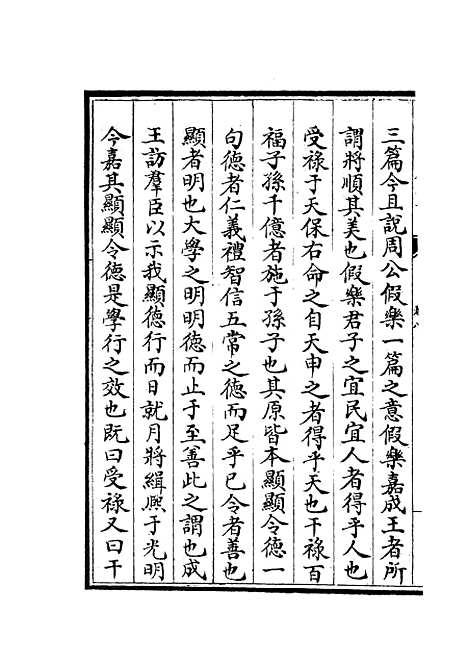 三篇今且說周公假樂一篇之意假樂嘉成王者所
謂將順其美也假樂君子之宜民宜人者得乎人也
受祿于天保右命之自天申之者得乎天也干祿百
福子孫千億者施于孫子也其原皆本顯顯令德一
句德者仁義禮智信五常之德而足乎已令者善也
顯者明也大學之明明德而止于至善此之謂也成
王訪羣臣以示我顯德行而日就月將緝熈于光明
今嘉其顯顯令德是學行之效也既曰受祿又曰干